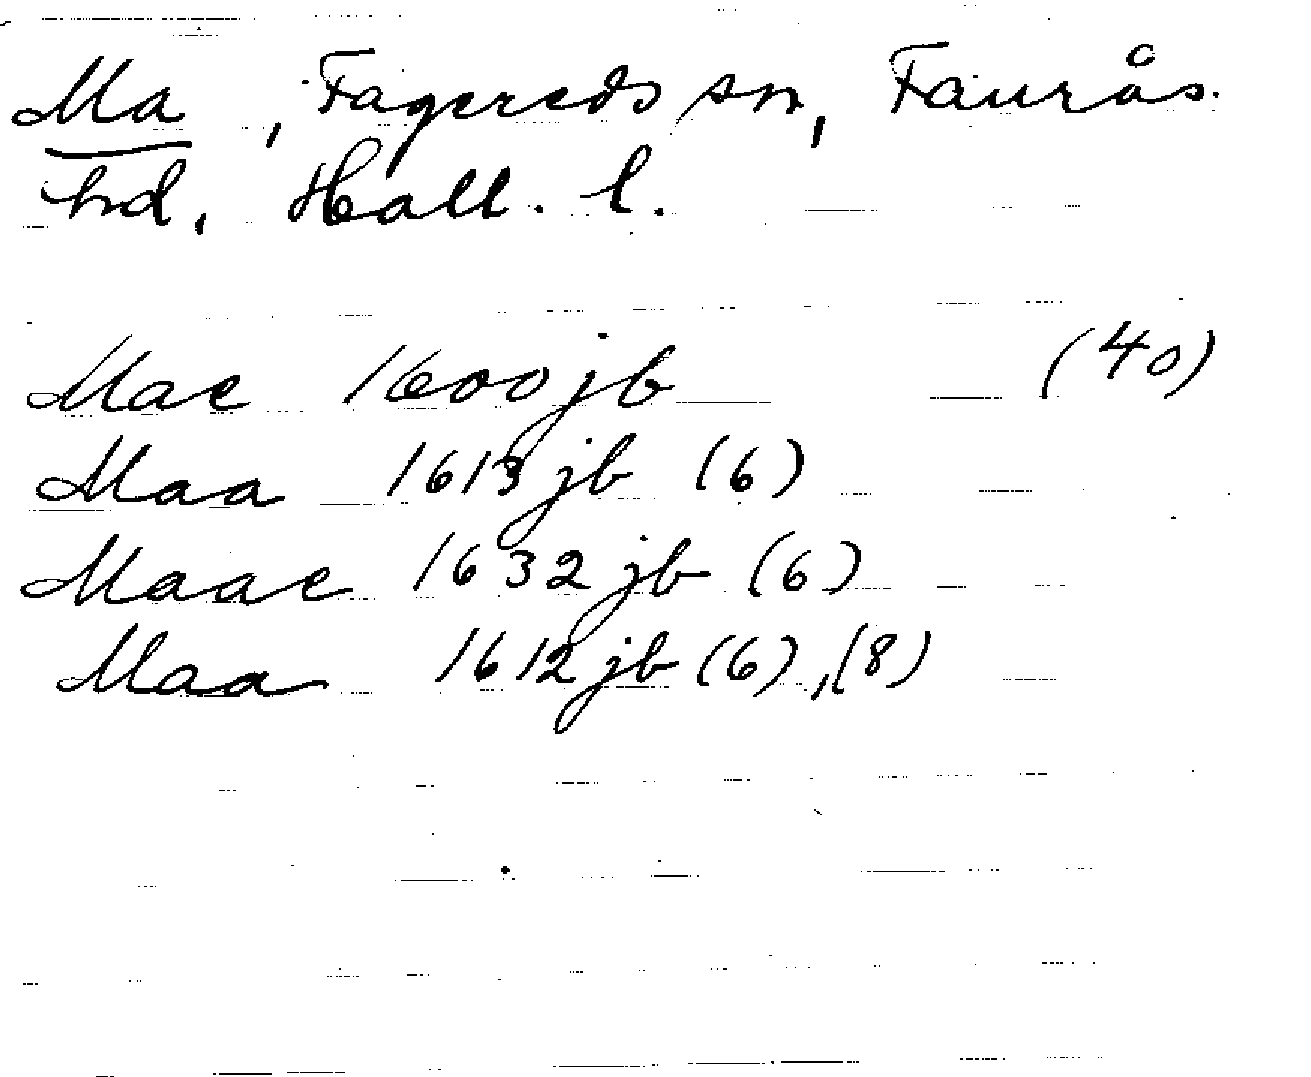 Ma, Fagereds sn, Faurås
hd, Hall. l.
Mae 1600 jb (40)
Maa 1613 jb (6)
Maae 1632 jb (6)
Maa 1612 jb (6), (8)